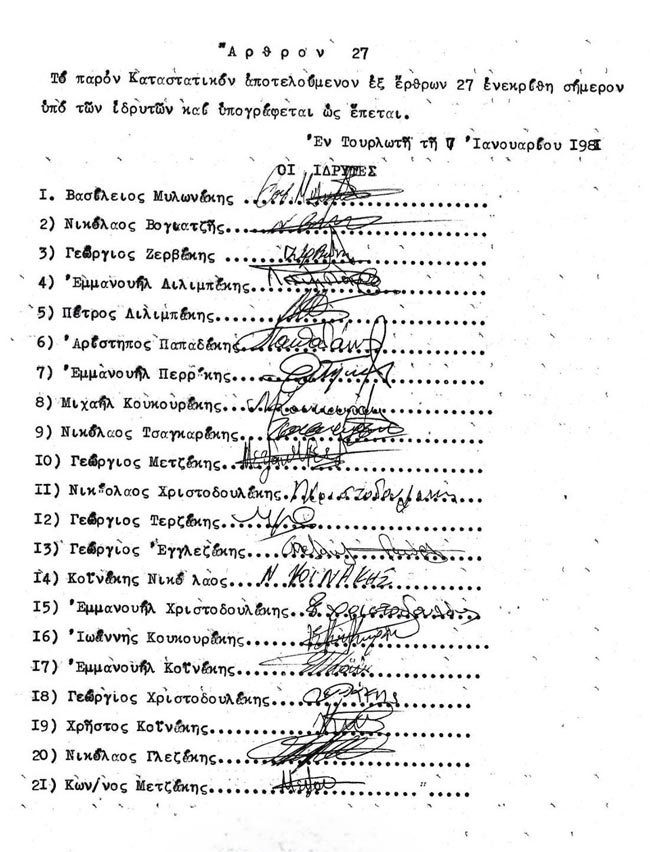 Ἄρθρον 27
Τό παρόν Καταστατικόν ἀποτελούμενον ἐξ ἄρθρων 27 ἐνεκρίθη σήμερον
ὑπό τῶν ἱδρυτῶν καί ὑπογράφεται ὡς ἕπεται.
Ἐν Τουρλωτῇ τῇ 7 Ἰανουαρίου 1981
ΟΙ ΙΔΡΥΤΕΣ
1. Βασίλειος Μυλωνάκης
2) Νικόλαος Βογιατζῆς
3) Γεώργιος Ζερβάκης
4) Ἐμμανουήλ Διλιμπάκης
5) Πέτρος Διλιμπάκης
6) Ἀρίστηπος Παπαδάκης
7) Ἐμμανουήλ Περράκης
8) Μιχαήλ Κουκουράκης
9) Νικόλαος Τσαγκαράκης
10) Γεώργιος Μετζάκης
11) Νικόλαος Χριστοδουλάκης
12) Γεώργιος Τερζάκης
13) Γεώργιος Ἐγγλεζάκης
14) Κοϊνάκης Νικόλαος Ν. ΚΟΙΝΑΚΗΣ
15) Ἐμμανουήλ Χριστοδουλάκης
16) Ἰωάννης Κουκουράκης
17) Ἐμμανουήλ Κοϊνάκης
18) Γεώργιος Χριστοδουλάκης
19) Χρῆστος Κοϊνάκης
20) Νικόλαος Γλεζάκης
21) Κων/νος Μετζάκης